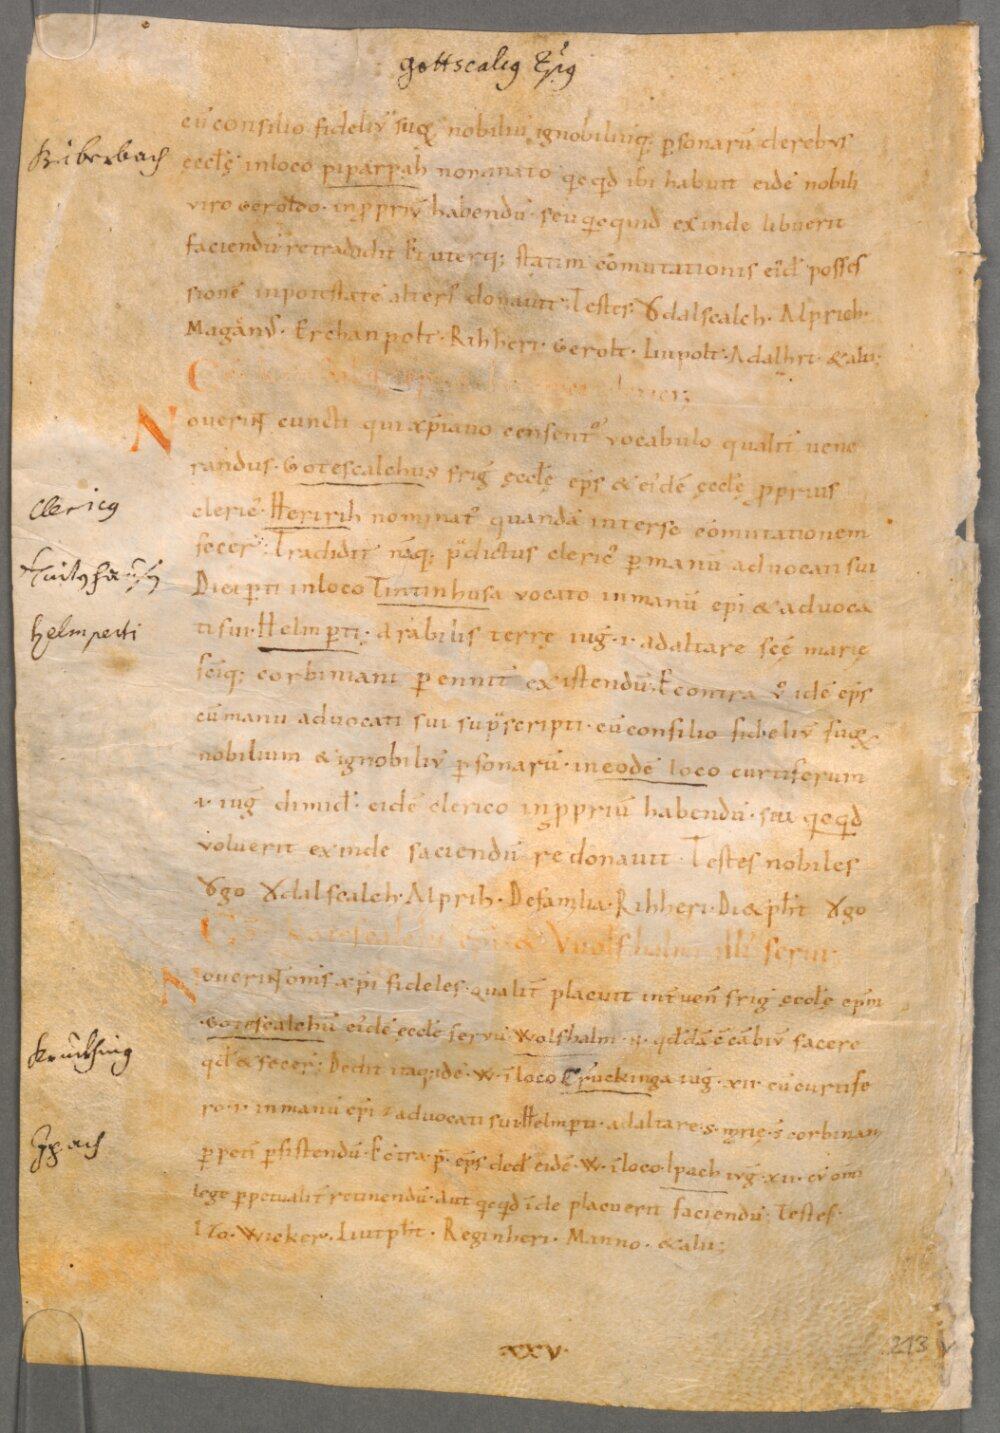 gottscalcus Epus
cū consilio fideliū suoꝝ nobiliū ignobiliūq; ꝑsonarū clerebys
Biberbach
ęcclę in loco piparpah nominato qcqd ibi habuit eidē nobili
viro Geroldo· in ꝓpriū habendū· seu qcquid exinde libuerit
faciendū retradidit Et uterq; statim cōmutationis eid posses
sionē in potestatē alteri donavit; Testes· Ŏdalscalch· Alprich·
Maganus· Erchanpolt· Rihheri· Gerolt· Liupolt· Adalhrt· & alii;
N
overint cuncti qui xp̄iano censent᷒ vocabulo qualit̄ vene
randus· Gotescalchus frig ęcclę ep̄s & eidē ęcclę ꝓprius
clericus
cleric᷒ Heririh nominat᷒ quandā inter se cōmutationem
fecer· Tradidit nāq; p̄dictus cleric᷒ ꝑ manū advocati sui
Diotꝑti in loco Tintinhusa vocato in manū ep̄i & advoca
helmperti
ti sui· Helmꝑti; arabilis terrę iuḡ·i· ad altare scē marię
scīq; corbiniani ꝑennit̄ existendū· Econtra v᷒ idē ep̄s
cū manu advocati sui sup̄scripti· cū consilio fideliū suoꝝ
nobilium & ignobiliū ꝑsonarū· in eodē loco curtiferum
·i· iuḡ dimid· eidē clerico in ꝓpriū habendū· siu qcqd
voluerit exinde faciendū redonavit· Testes nobiles
Ŏgo Ŏdalscalch· Alprih· De familia· Rihheri· Diotpht Ŏgo
Gotescalchi ep̄i & Wolfhalm illi᷒ servi·
N
overint om̄s xp̄i fideles· qualit̄ placuit int̄ ven̄ frig ęcclę ep̄m
·Gotescalchū eidē ęcclę servū Wolfhalm·
kruckhing
qd & fecer; Dedit itaq; idē· W· ī loco Cruckinga iuḡ· xii· cū curtife
ro·i· in manū ep̄i & advocati sui Helmꝑti· ad altare· s· mrię· & s corbinani
Ipach
ꝑpeti ꝑsistendū· Ecōtra p̄· ep̄s ded eidē· W· ī loco· Ipach iuḡ· xii· cū om̄i
lege ꝑpetualit̄ retinendū· aut qcqd īde placuerit faciendū; Testes·
Ito· Wicker· Liutpht· Reginheri· Manno· & alii;
·xxv·
213